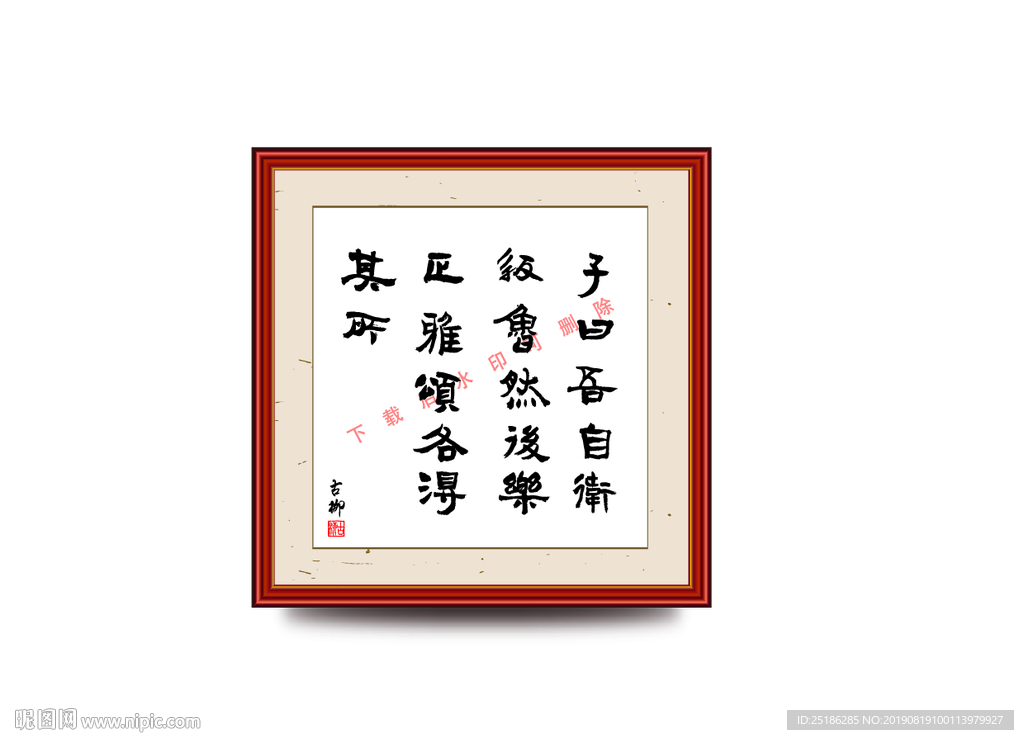 子曰吾自衛
叛魯然後樂
正雅頌各得
其所
古柳
下载后水印可删除
昵图网 www.nipic.com
ID:25186285 NO:20190819100113979927